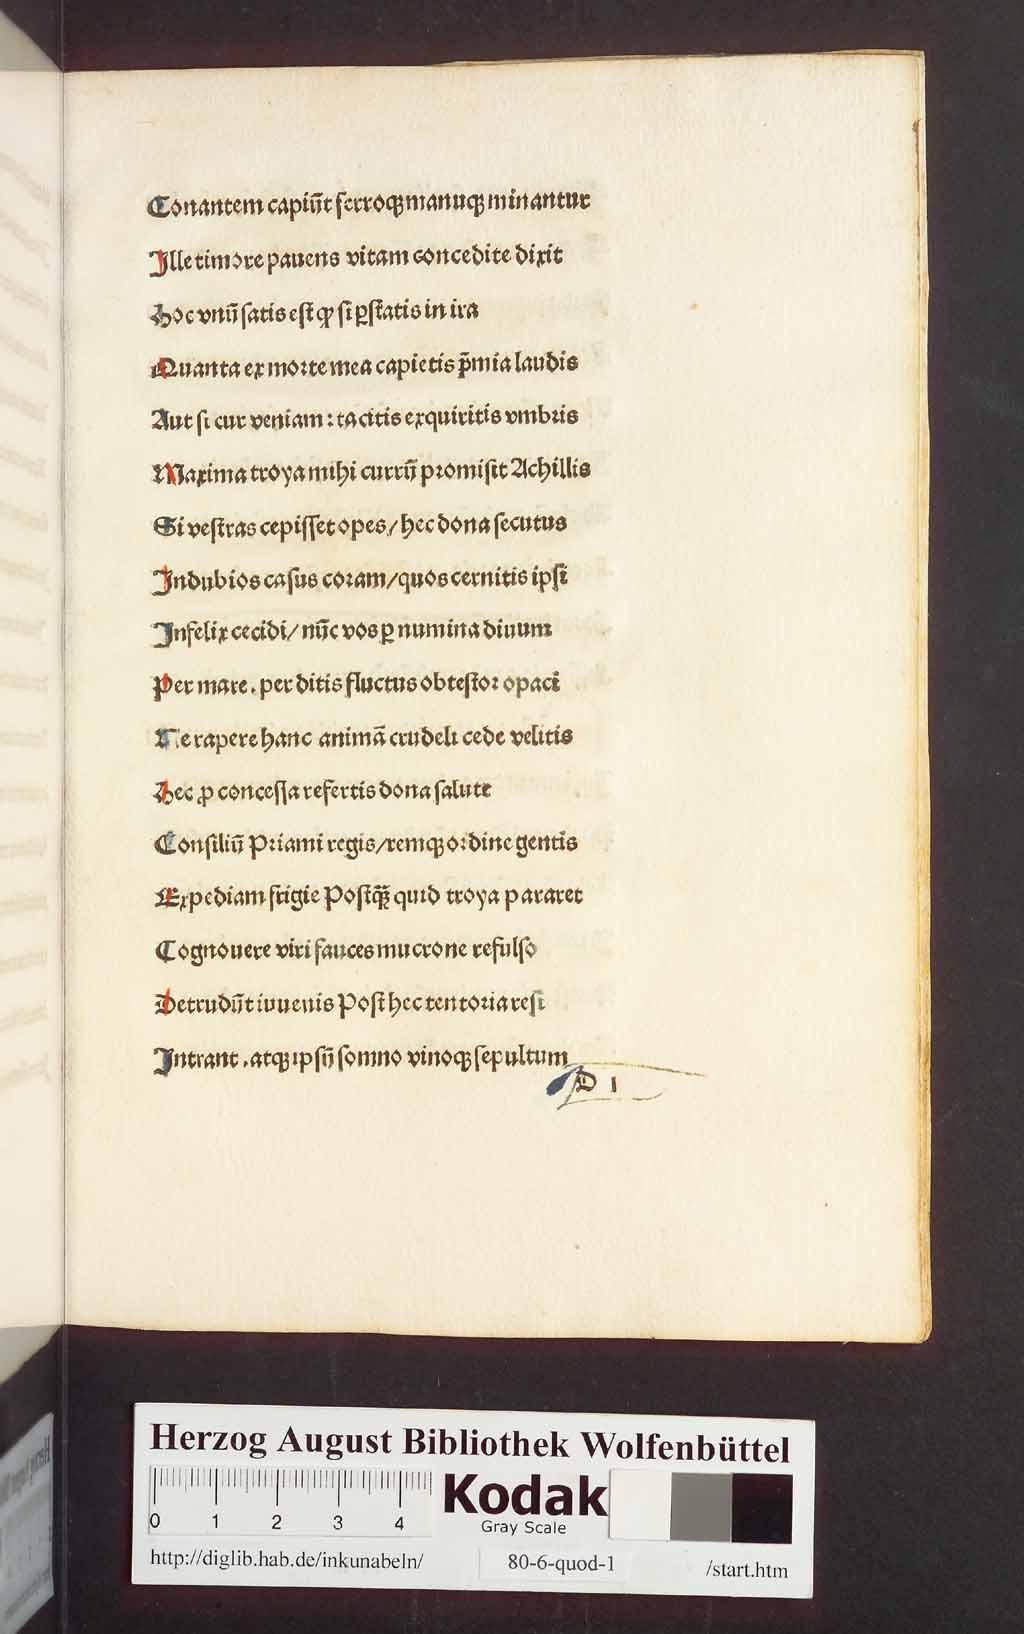 Conantem capiūt ferroqꝫ manuqꝫ minantur
Ille timore pauens vitam concedite dixit
Hoc vnū satis est ꝙ si ꝑstatis in ira
Quanta ex morte mea capietis p̄mia laudis
Aut si cur veniam : tacitis exquiritis vmbris
Maxima troya mihi currū promisit Achillis
Si vestras cepisset opes / hec dona secutus
In dubios casus coram / quos cernitis ipsi
Infelix cecidi / nūc vos ꝑ numina diuum
Per mare . per ditis fluctus obtestor opaci
Ne rapere hanc animā crudeli cede velitis
Hec ꝓ concessa refertis dona salute
Consiliū Priami regis / remqꝫ ordine gentis
Expediam frigie Postq̄ꝫ quid troya pararet
Cognouere viri fauces mucrone refulso
Detrudūt iuuenis Post hec tentoria resi
Intrant . atqꝫ ipsū somno vinoqꝫ sepultum
D 1
Herzog August Bibliothek Wolfenbüttel
0 1 2 3 4
Kodak
Gray Scale
http://diglib.hab.de/inkunabeln/ 80-6-quod-1 /start.htm